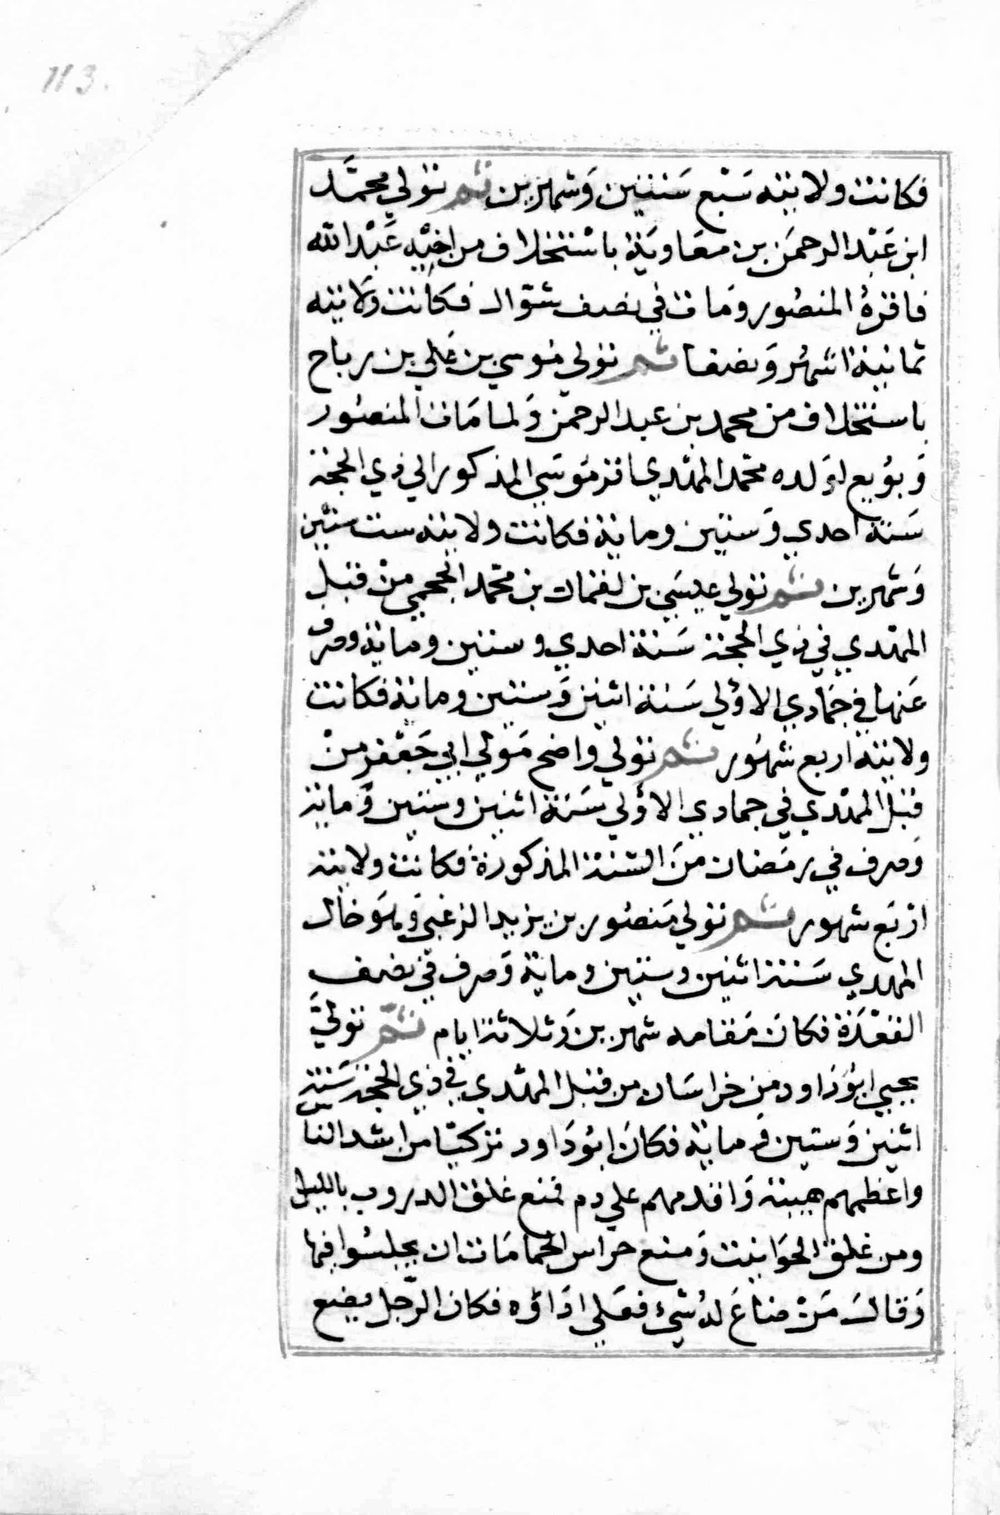 113.
فكانت ولايته سَبْع سَنتين وَشهرين ثم تولي محمَّد
ابن عَبْد الرحمَن بن معَاويَة باسْتخلاف من اخِيْه عَبْد الله
فاقرهُ المنصُور وَمات في نصف شوّال فكانت وَلايته
ثمانية اشهُر وَنصفا ثم تولي مُوسي بن عَلي بن رباح
باستخلاف من محمد بن عبد الرحمن وَلما مَات المنصُور
وَبوُيع لوَلده محمد المهْدي اقر مُوسَي المذكور الي ذي الحجة
سَنة احدي وَستين وماية فكانت ولايته ست سنين
وَشهرين ثم تولي عيسَي بن لقمان بن محمد الجمحي منْ قبل
المهْدي في ذي الحجة سَنة احدي وستين وماية وصرف
عَنها في جمَادي الاوُلي سَنة اثنين وَستين وماية فكانت
ولايته اربع شهوُر ثم تولي واضح مَولي ابي جَعْفر مِنْ
قبل المهْدي في جمادي الاوُلي سَنة اثنين وستين وَماية
وَصرف في رمَضان منَ السَّنة المذكورة فكانت ولايته
ارْبَع شهور ثم تولي مَنصُور بن يزيد الزغبي وَهوَ خال
المهدي سَنة اثنين وستين وماية وَصرف في نصف
القعْدَة فكان مَقامه شهرين وَثلاثة ايام ثمّ تولَّي
يحيي ابوُ دَاود من خراسَان من قبل المهْدي في ذي الحجة سَنة
اثنين وَستين وَماية فكانَ ابُو دَاود تركيّا من اشد الناس
واعظمهم هيبة وَاقدمهم علي دم فمنع غلق الدروب بالليل
ومن غلق الحوَانيت وَمنع حراس الحمامَات ان يجلسُوا فيها
وَقالَ مَنْ ضاعَ لهُ شيءُ فعَلي ادَاؤه فكان الرّجل يضع